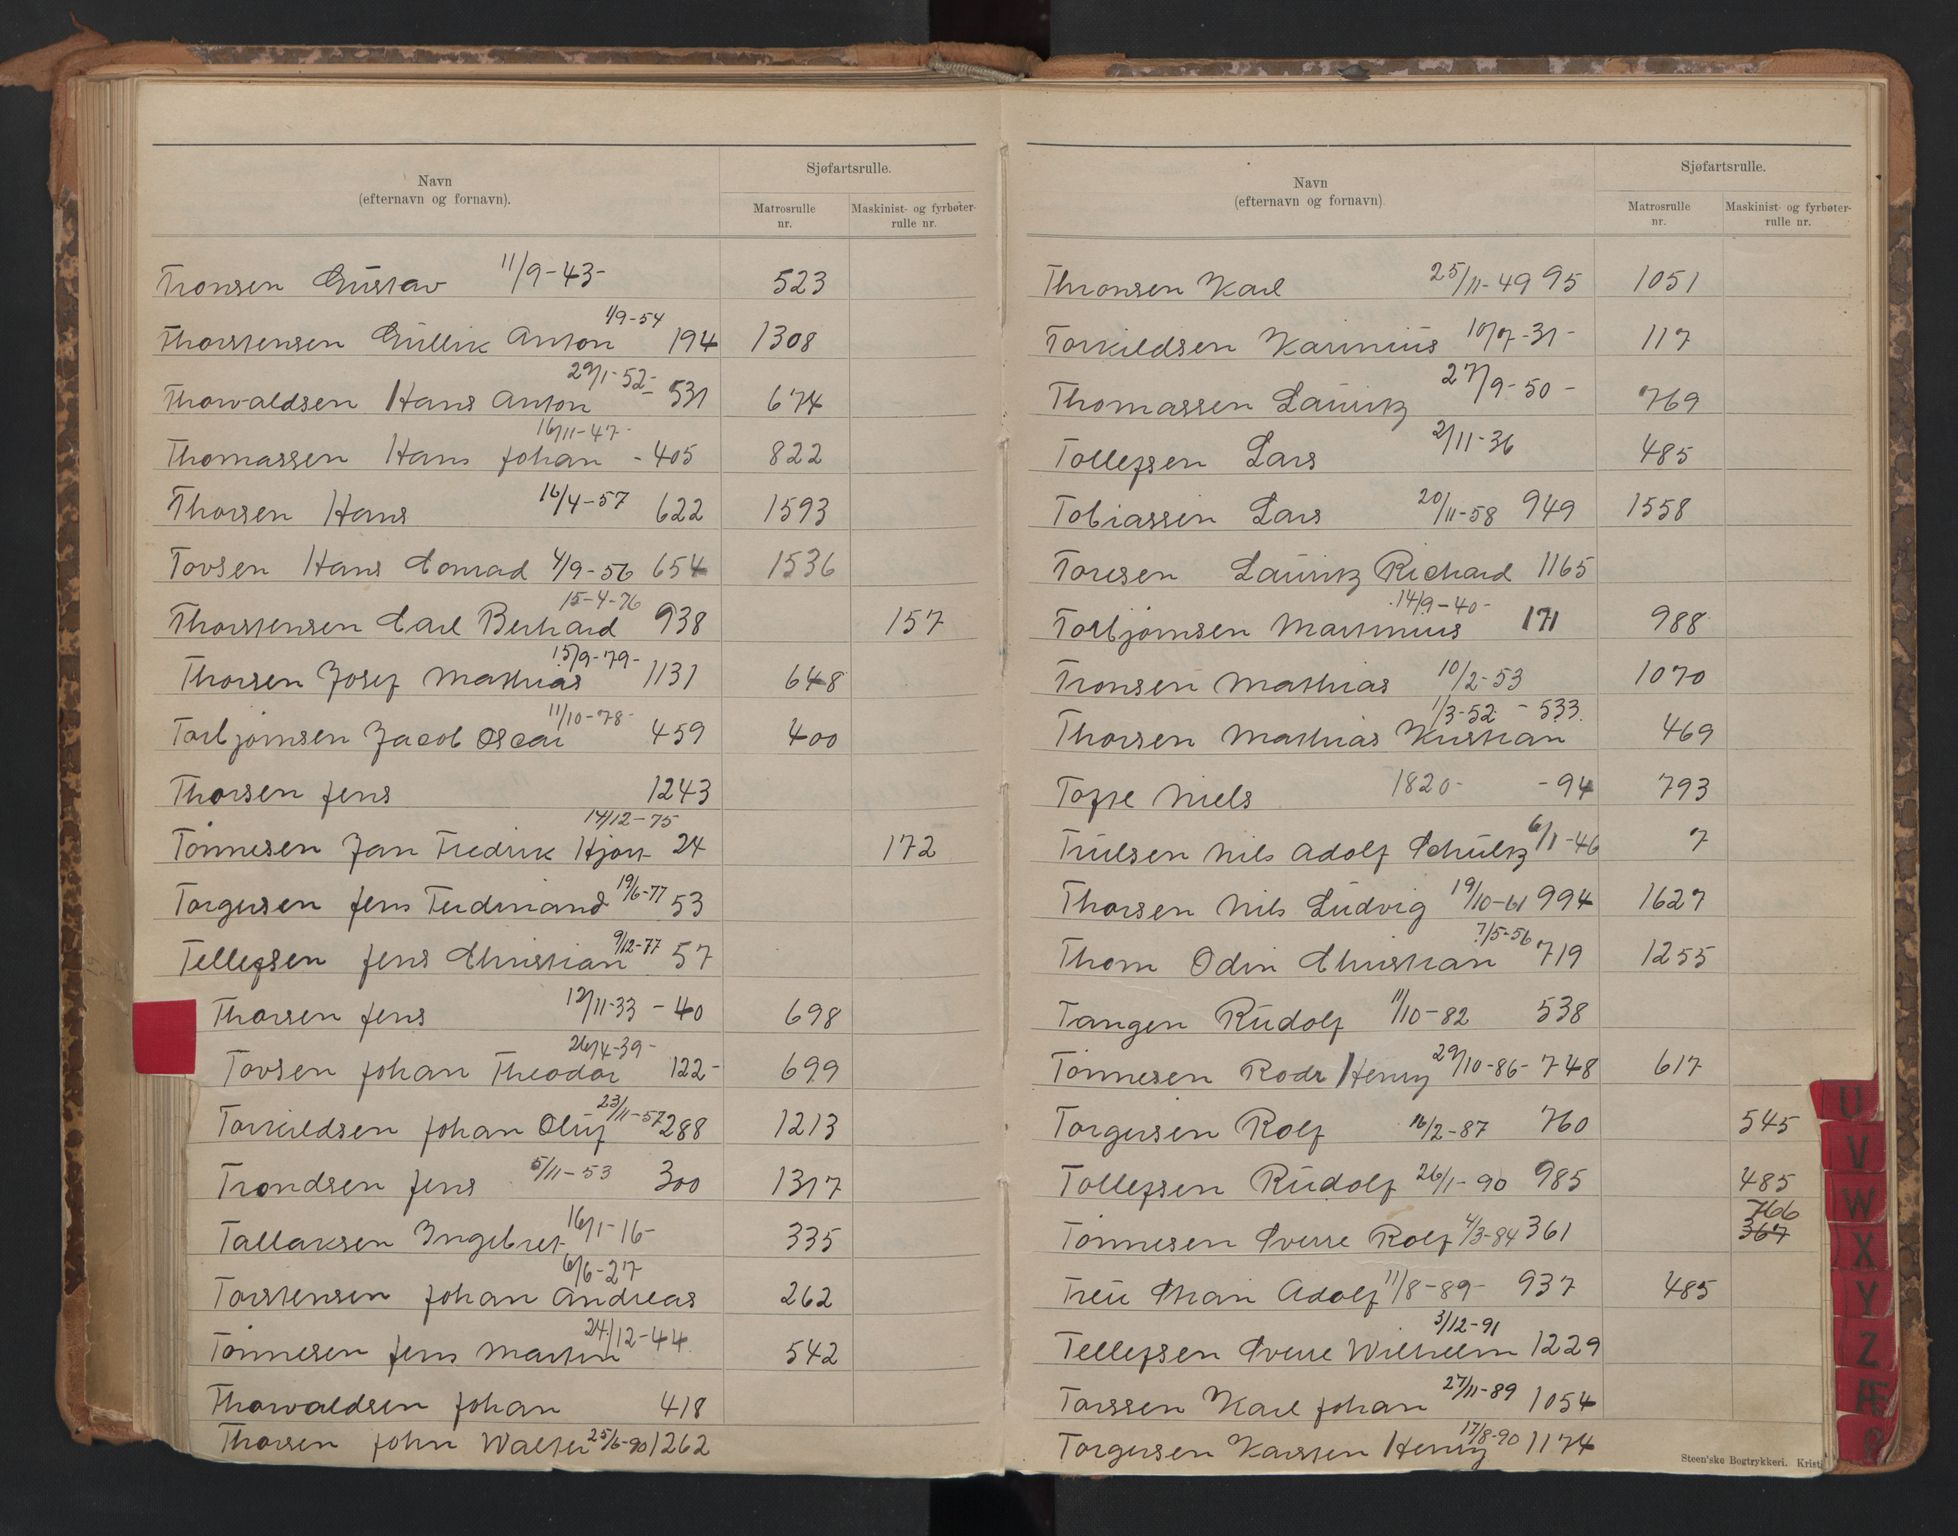 Navn
(efternavn og fornavn).
Sjøfartsrulle.
Matrosrulle
nr.
Maskinist- og fyrbøter-
rulle nr.
Tronsen Gustav 11/9-43- 523
Thorstensen Gullik Anton 1/9-54 194 1308
Thorvaldsen Hans Anton 29/1-52- 531 674
Thomassen Hans Johan 16/11-47- -405 822
Thorsen Hans 16/4-57 622 1593
Tovsen Hans Conrad 4/9-56 654 1536
Thorstensen Carl Berhard 15-4-76 938 157
Thorsen Josef Mathias 15/9-79- 1131 648
Torbjørnsen Jacob Oscar 11/10-78- 459 400
Thorsen Jens 1243
Tønnesen Jan Fredrik Hjort 14/12-75 24 172
Torgersen Jens Ferdinand 19/6-77 53
Tellefsen Jens Christian 9/12-77 57
Thorsen Jens 12/11-33 -40 698
Tovsen Johan Theodor 26/4-39- 122- 699
Torkildsen Johan Oluf 23/11-57 288 1213
Trondsen Jens 5/11-53 300 1317
Tallaksen Ingebret 16/1-16- 335
Torstensen Johan Andreas 6/6-27 262
Tønnesen Jens Martin 24/12-44 542
Thorvaldsen Johan 418
Thorsen John Walter 25/6-90 1262
Navn
(efternavn og fornavn)
Sjøfartsrulle.
Matrosrulle
nr.
Maskinist- og fyrbøter-
rulle nr.
Thronsen Karl 25/11-49 95 1051
Torkildsen Karinius 10/7-31- 117
Thomassen Lauritz 27/9-50- 769
Tollefsen Lars 2/11-36 485
Tobiassen Lars 20/11-58 949 1558
Toresen Lauritz Richard 1165
Torbjørnsen Martinius 14/9-40- 171 988
Tronsen Mathias 10/2-53 1070
Thorsen Mathias Kristian 1/3-52 - 533 469
Tofte Niels 1820- -94 793
Trulsen Nils Adolf Schultz 6/1-46 7
Thorsen Nils Ludvig 19/10-61 994 1627
Thom Odin Christian 7/5-56 719 1255
Tangen Rudolf 11/10-82 538
Tønnesen Rodr Henry 29/10-86- 748 617
Torgersen Rolf 16/2-87 760 545
Tollefsen Rudolf 26/1-90 985 485
Tønnesen Sverre Rolf 4/3-84 361 766 367
Treu Stian Adolf 11/8-89- 937 485
Tellefsen Sverre Wilhelm 3/12-91 1229
Torssen Karl Johan 27/11-89 1054
Torgersen Karsten Henry 17/8-90 1174
Steen'ske Bogtrykkeri. Krist
U
V
W
X
Y
Z
Æ